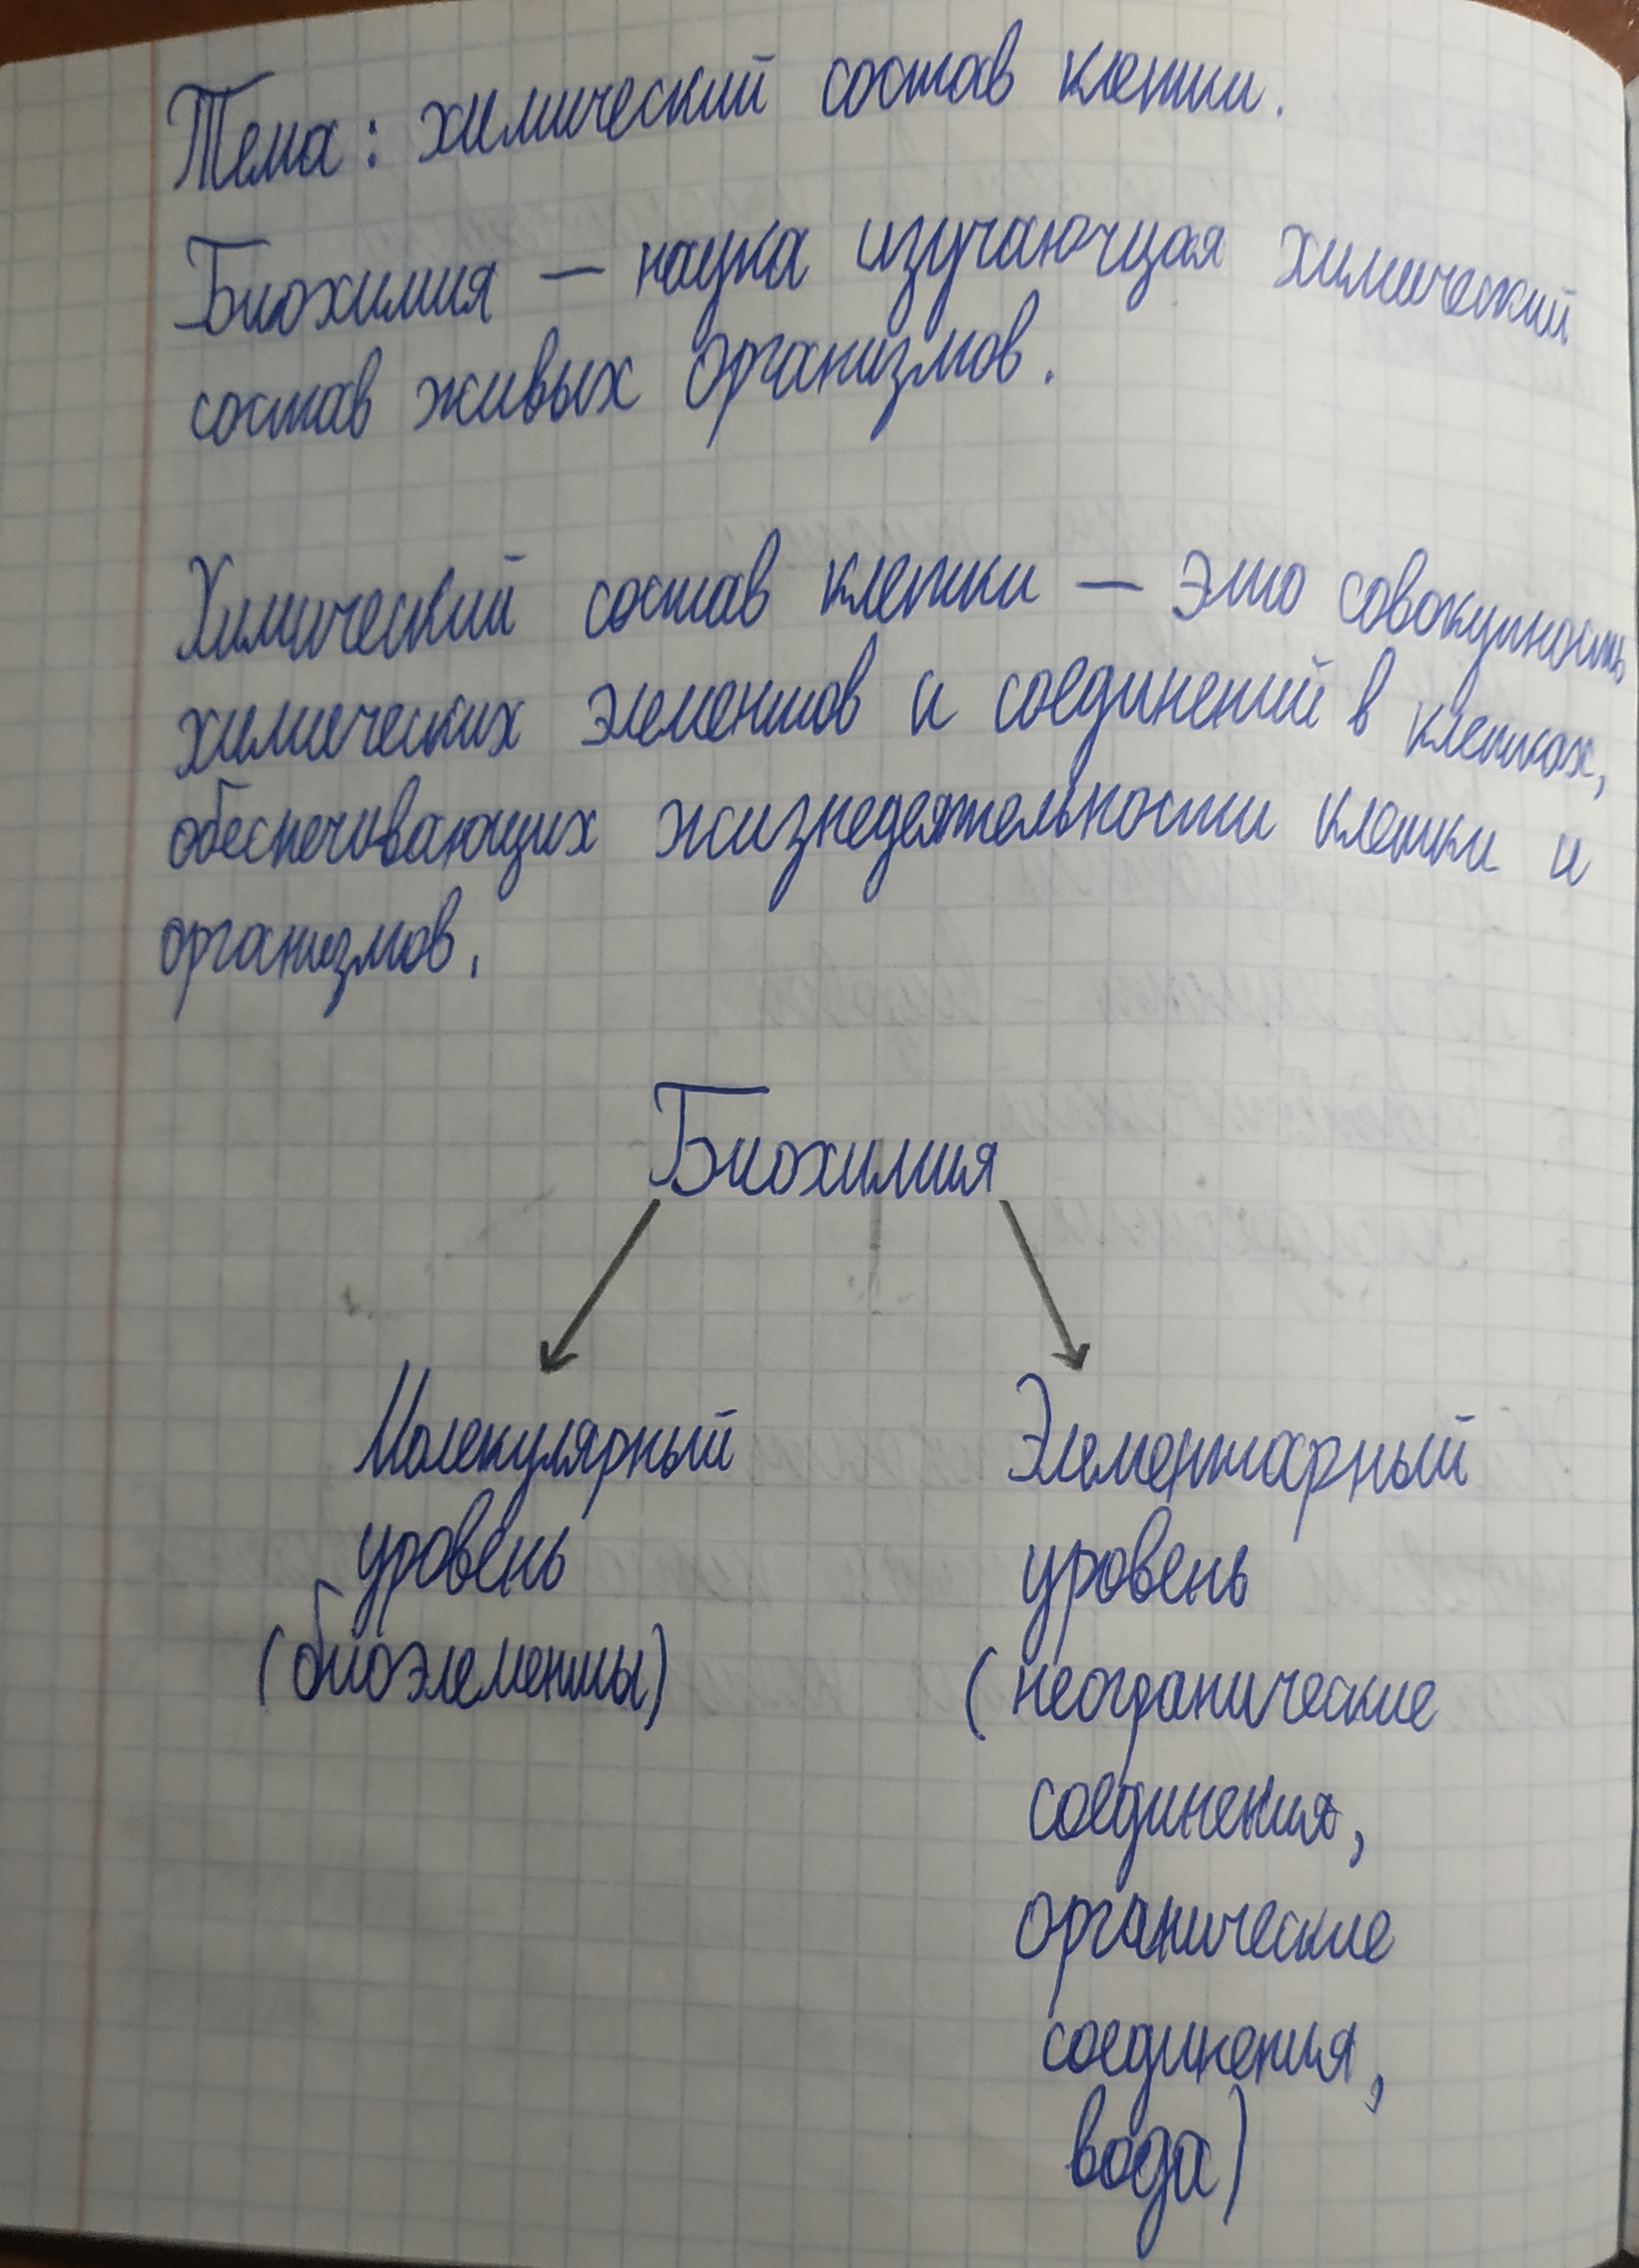 Тема: химический состав клетки.
Биохимия — наука изучающая химический
состав живых организмов.
Химический состав клетки — это совокупность
химических элементов и соединений в клетках,
обеспечивающих жизнедеятельности клетки и
организмов.
Биохимия
Молекулярный
уровень
(биоэлементы)
Элементарный
уровень
(неогранические
соединения,
органические
соединения,
вода)